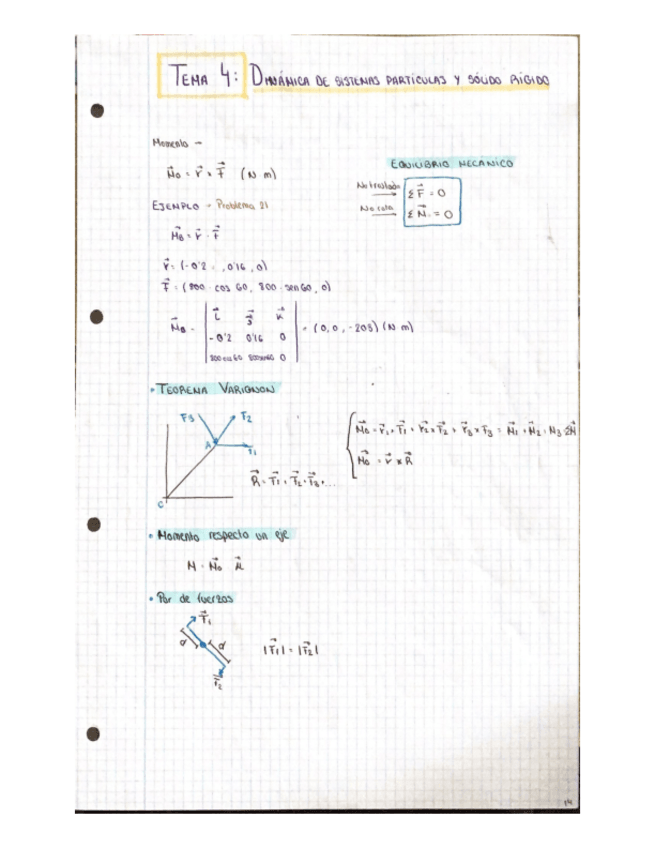 TEMA 4: DINÁMICA DE SISTEMAS PARTÍCULAS Y SÓLIDO RÍGIDO
Momento -
M⃗o = r⃗ × F⃗ (N m)
EQUILIBRIO MECANICO
No traslada → Σ F⃗ = 0
No rota → Σ M⃗ = 0
EJEMPLO - Problema 21
M⃗B = r⃗ · F⃗
r⃗ = (-0'2 , 0'16, 0)
F⃗ = (800 · cos 60, 800 · sen 60, 0)
M⃗B = | i⃗ j⃗ k⃗ |
-0'2 0'16 0 = (0, 0, -203) (N m)
800 cos 60 800 sen 60 0
• TEOREMA VARIGNON
F3 F2
A F1
M⃗o = r⃗1 × F⃗1 + r⃗2 × F⃗2 + r⃗3 × F⃗3 = M⃗1 + M⃗2 + M⃗3 = ΣM⃗
M⃗o = r⃗ × R⃗
R⃗ = F⃗1 + F⃗2 + F⃗3 + ...
• Momento respecto un eje
M = M⃗o μ⃗
• Par de fuerzas
F⃗1
d d
|F⃗1| = |F⃗2|
F⃗2